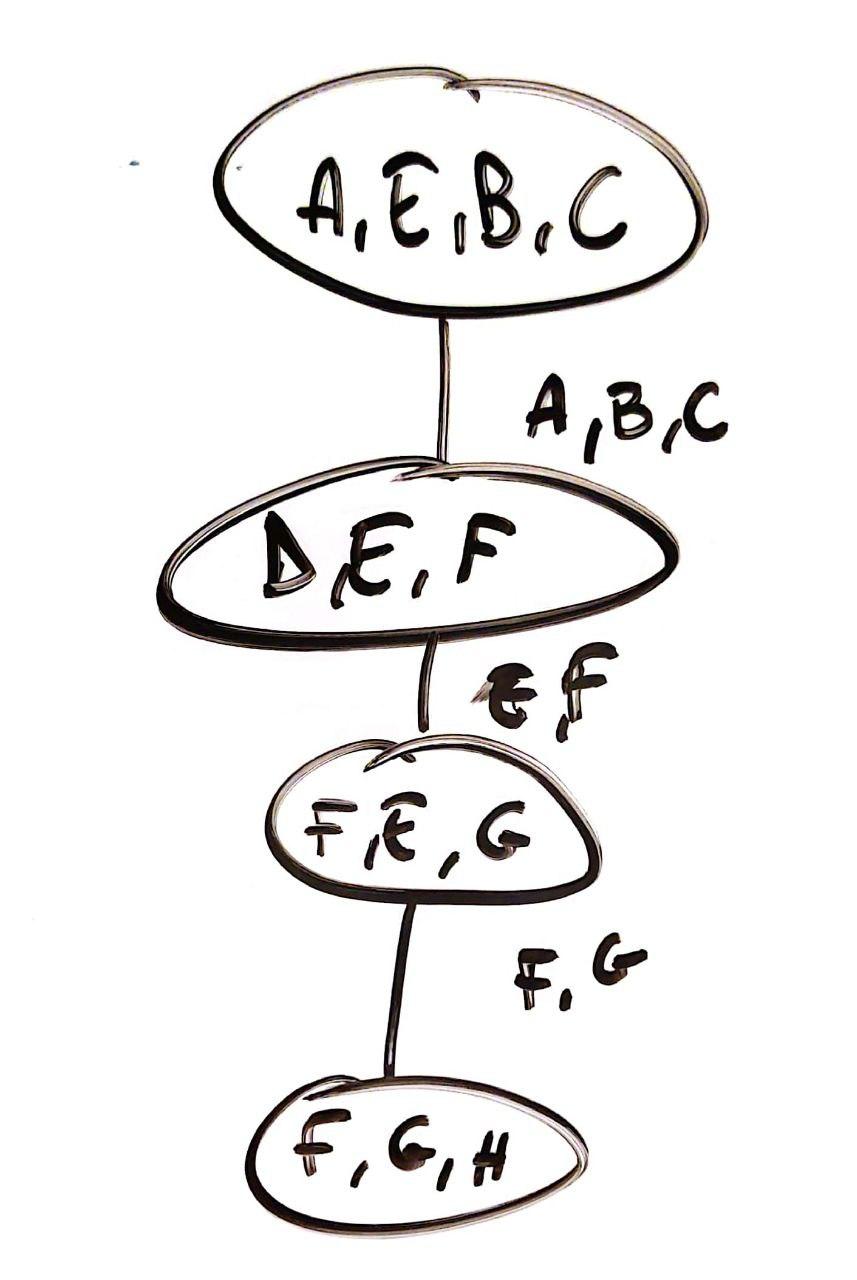 A, E, B, C
A, B, C
D, E, F
E, F
F, E, G
F, G
F, G, H